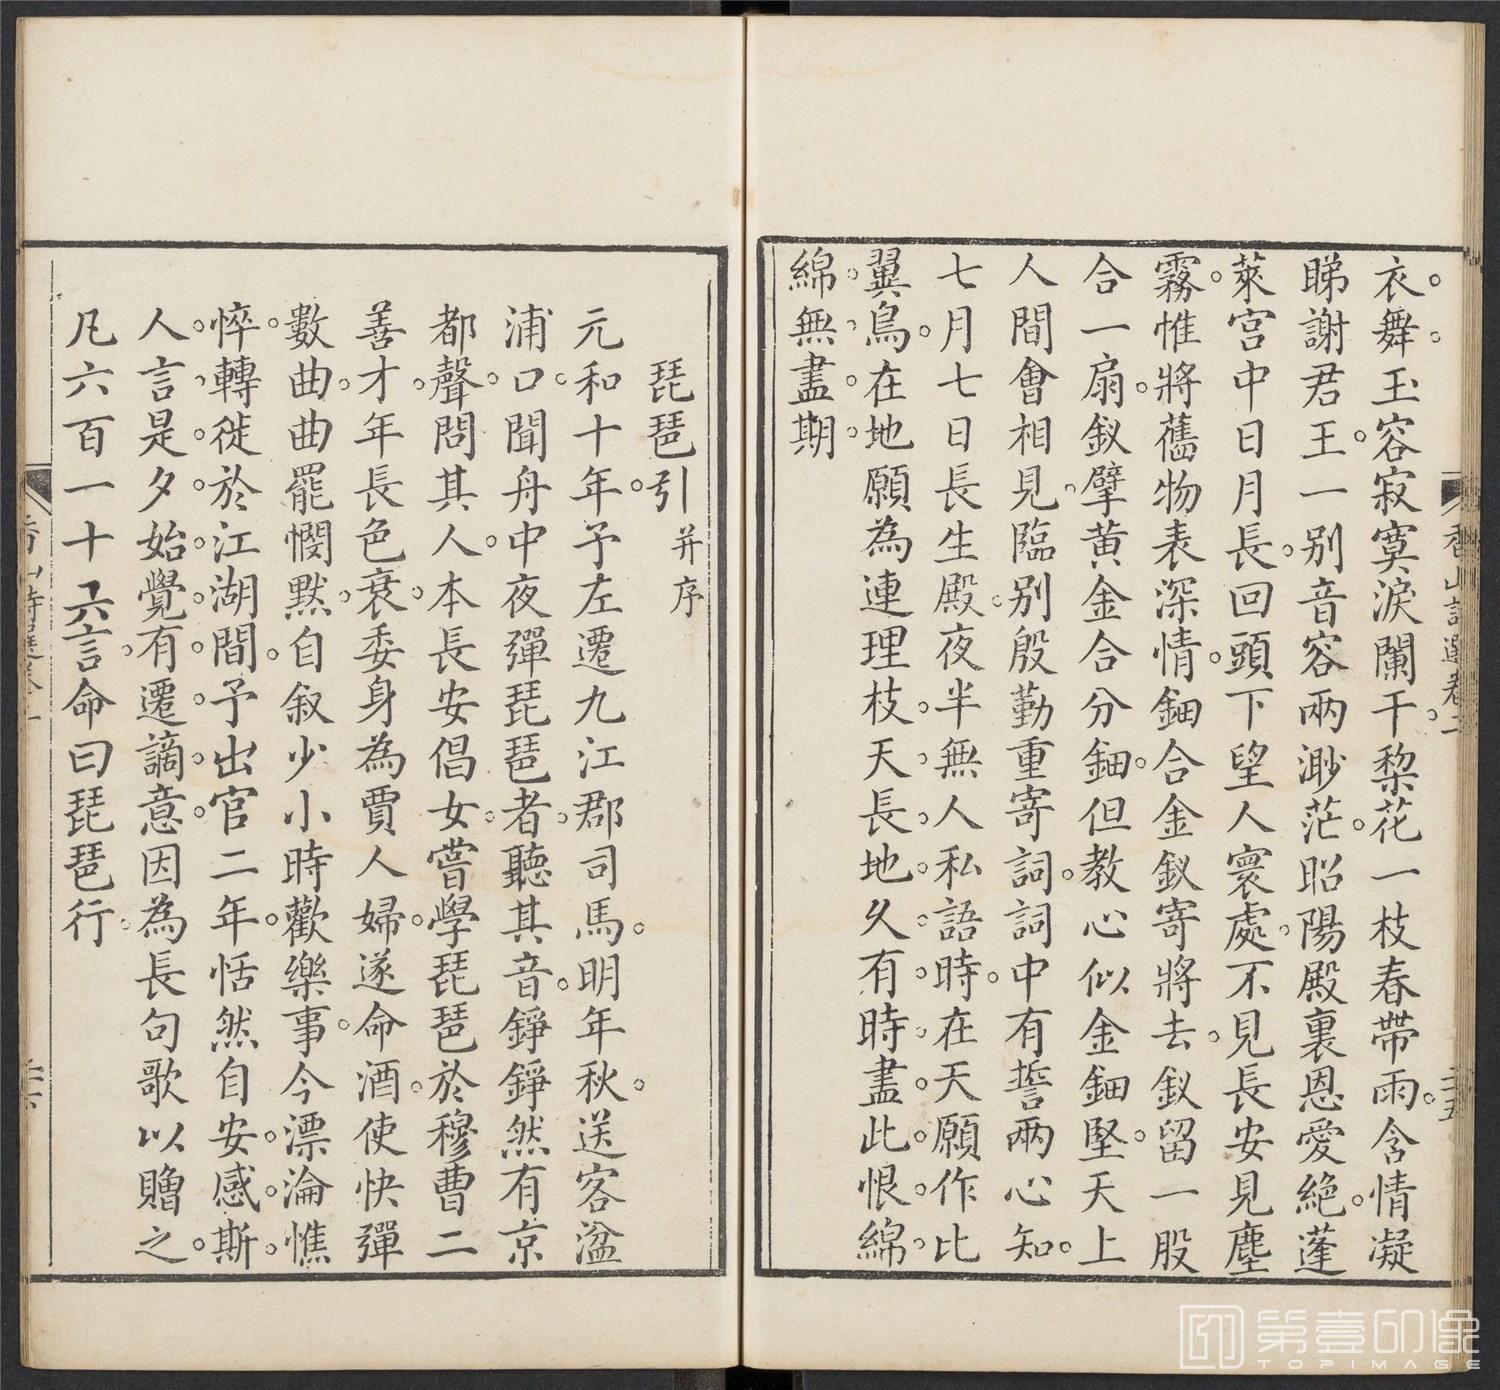 衣舞玉容寂寞淚闌干棃花一枝春帶雨含情凝
睇謝君王一别音容兩渺茫昭陽殿裏恩愛絕蓬
萊宮中日月長回頭下望人寰處不見長安見塵
霧惟將舊物表深情鈿合金釵寄將去釵留一股
合一扇釵擘黄金合分鈿但教心似金鈿堅天上
人間會相見臨别殷勤重寄詞詞中有誓兩心知
七月七日長生殿夜半無人私語時在天願作比
翼鳥在地願為連理枝天長地久有時盡此恨綿
綿無盡期
香山詩選卷二
二十五
琵琶引并序
元和十年予左遷九江郡司馬明年秋送客湓
浦口聞舟中夜彈琵琶者聽其音錚錚然有京
都聲問其人本長安倡女嘗學琵琶於穆曹二
善才年長色衰委身為賈人婦遂命酒使快彈
數曲曲罷憫默自叙少小時歡樂事今漂淪憔
悴轉徙於江湖間予出官二年恬然自安感斯
人言是夕始覺有遷謫意因為長句歌以贈之
凡六百一十六言命曰琵琶行
第壹印像
TOPIMAGE